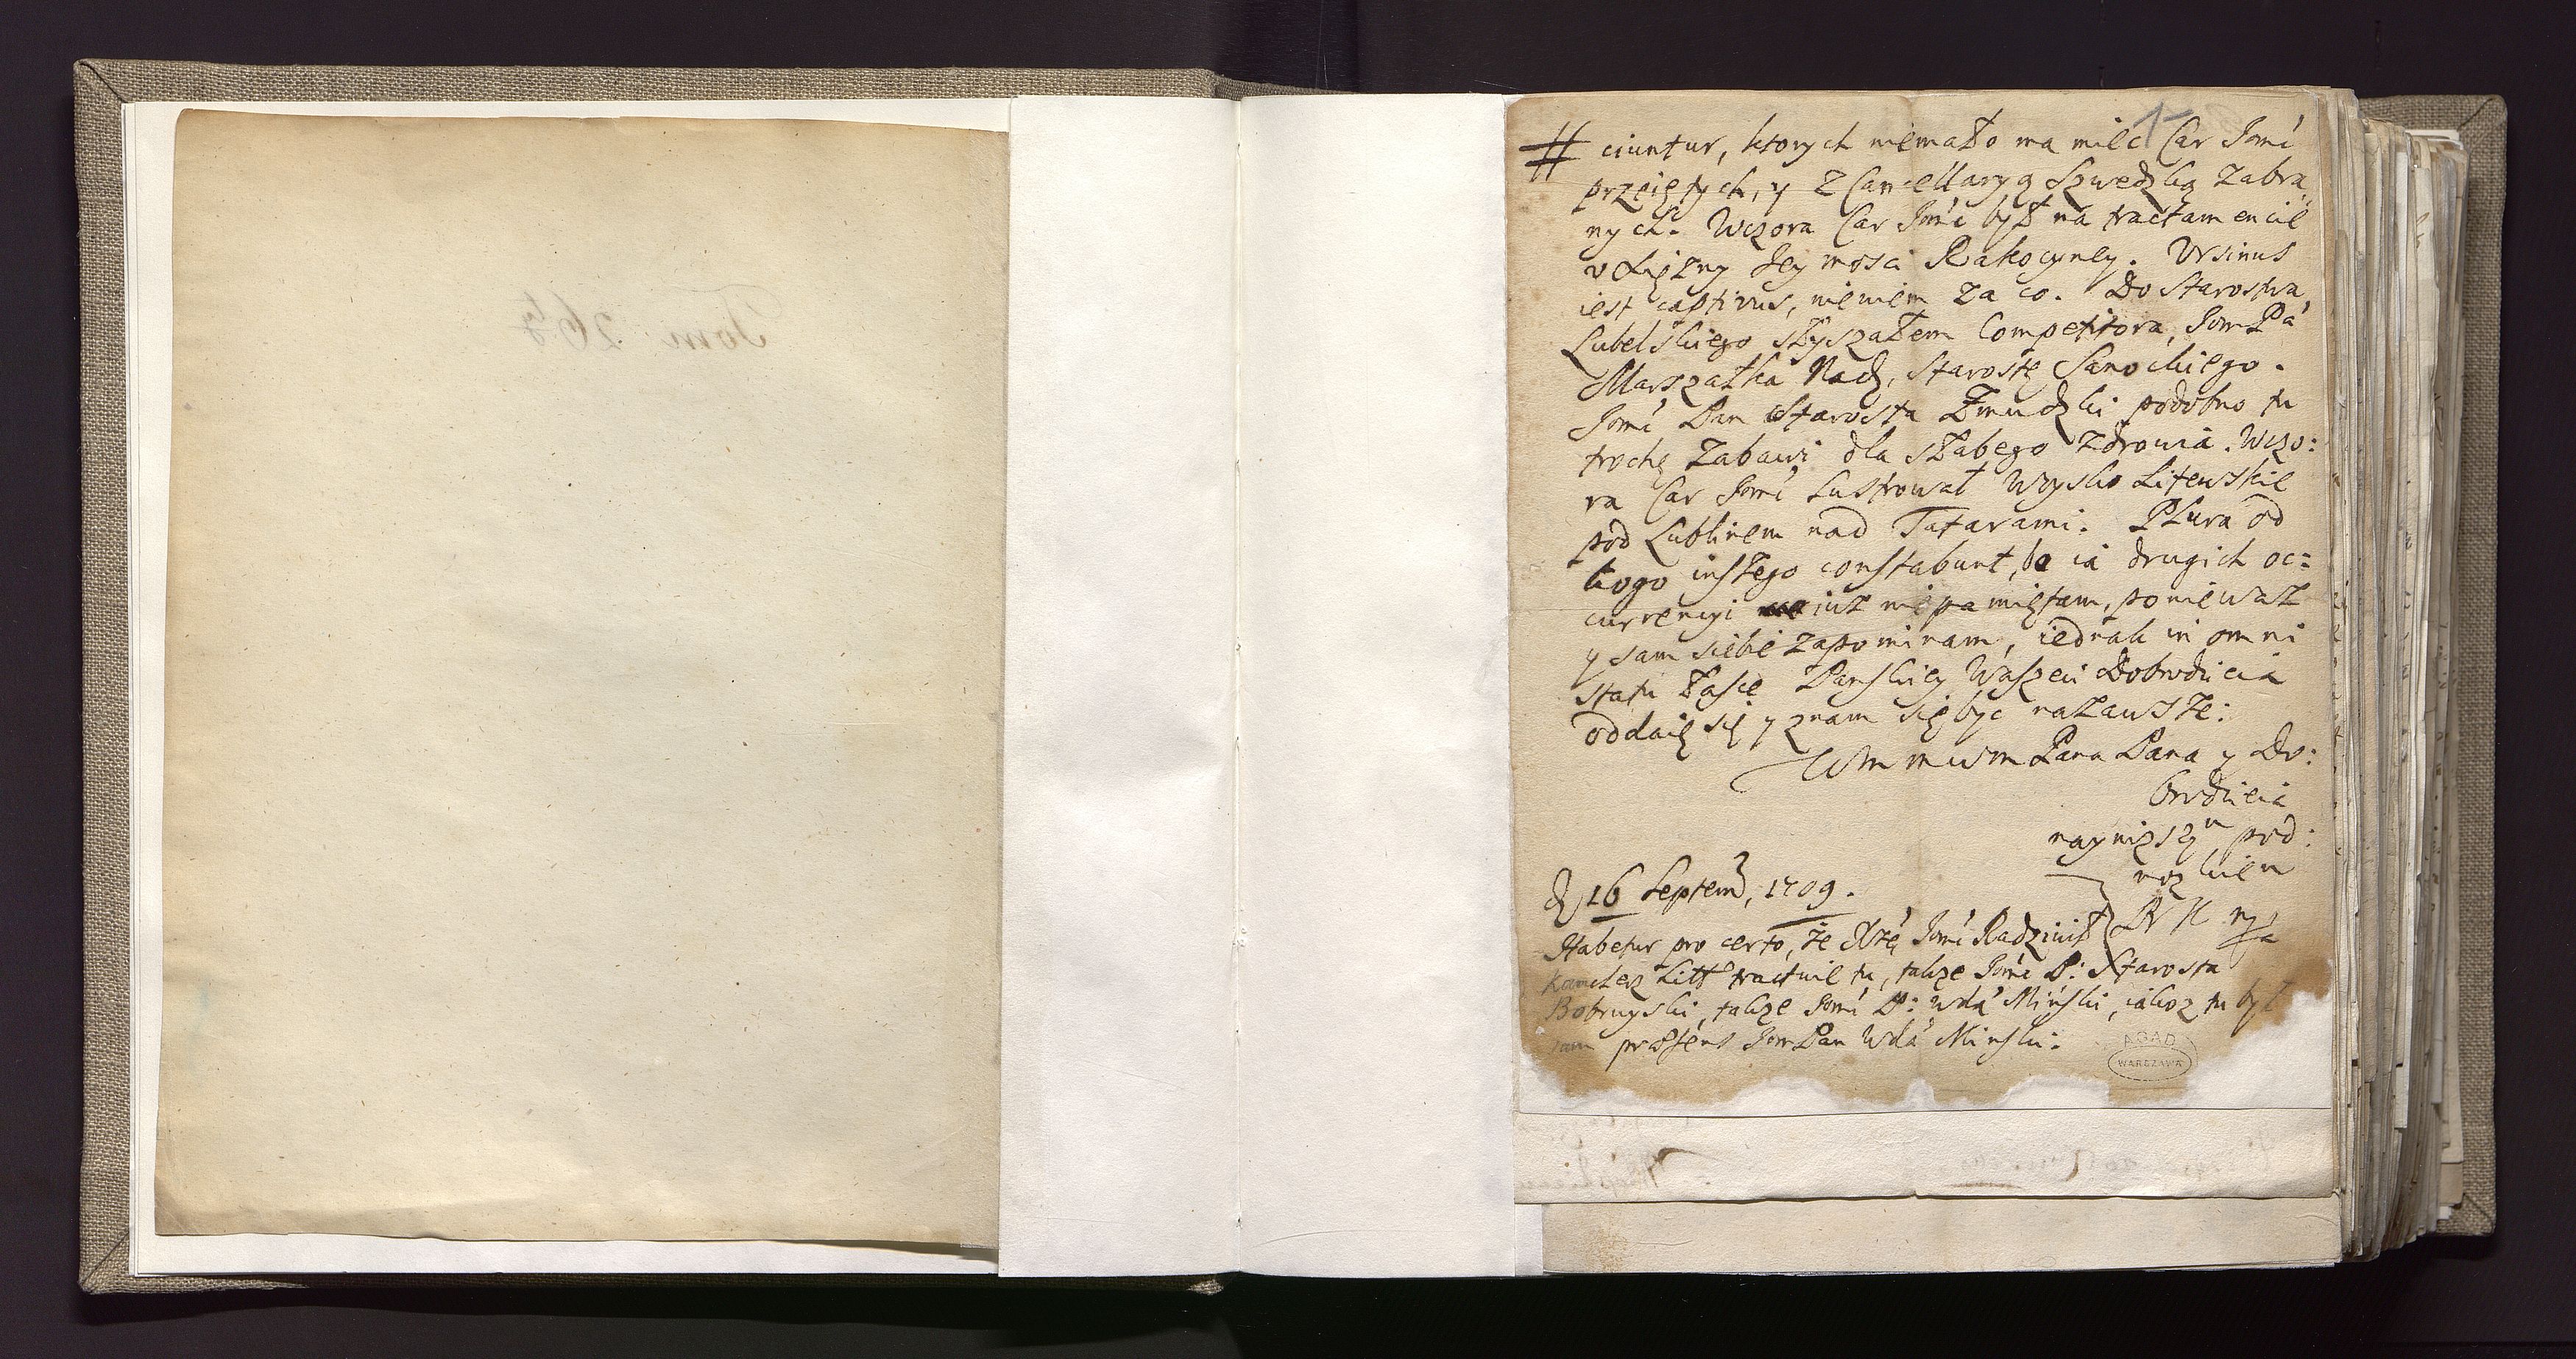 # ciuntur, ktorych niemało ma miec Car Jomć
przeiętych, y z Cancellaryą Szwedzką zabra,
nych. Wczora Car Jomć był na tractamencie
v Xiężny Jey mosci Rakocyney. Vrsinus
iest captivus, niewiem za co. Do Starostwa
Lubelskiego słyszałem Competitora, Jom Pá
Marszałka Nadẓ, Starostę Sanockiego.
Jomć Pan Starosta Żmudzki podobno tu
trochę zabawi dla słabego zdrowia. Wczo:
ra Car Jomć Lustrował Woysko Litewskie
pod Lublinem nad Tatarami. Plura od
kogo inszego constabunt, bo ia drugich oc=
currencyi iuż niepamiętam, poniewaz
y sam siebie zapominam, iednak in omni
statu łasce Panskiey Waszeci Dobrodzieia
oddaię się y znam się byc nazawsze:
Wm mwm Pana Pana y Do:
brodzieia
naynizszym pod:
nozkiem
d 16 Septem, 1709.
Habetur pro certo, że Xżę Jomć Radziwił
Kanclerz Litt tractuie tu, takze Jomć P: Starosta
Bobruyski, takze Jomć P: Wdá Miński, iakoz tu był
sam præsens Jom Pan Wdá Minski.
AGAD
WARSZAWA